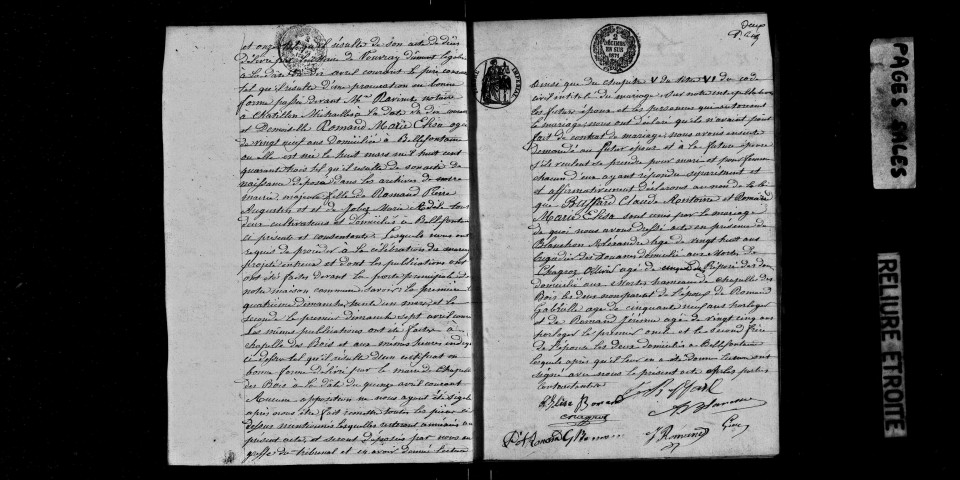 et onze tel qu'il résulte de son acte de décès
délivré par le maire de Fouvray dûment légalisé
à la date du dix avril courant le père
tel qu'il résulte d'une procuration en bonne
forme passée devant Me Ravinet notaire
à Chatillon Michaille à la date du dix
et Demoiselle Romand Marie Elisa agée
de vingt neuf ans domiciliée à Bellefontaine
où elle est née le huit mars mil huit cent
quarante trois tel qu'il résulte de son acte de
naissance déposé dans les archives de notre
mairie, majeure fille de Romand Pierre
Augustin et de Jobez Marie Adèle tous
deux cultivateurs et domiciliés à Bellefontaine
ci présents et consentants. Lesquels nous ont
requis de procéder à la célébration du mariage
projeté entre eux et dont les publications ont
été faites devant la porte principale de
notre maison commune savoir : la première
quatrième dimanche trente un mars, et la
seconde le premier dimanche sept avril
Les mêmes publications ont été faites à
Chapelle des Bois et aux mêmes heures
ci-dessus tel qu'il résulte d'un certificat en
bonne forme délivré par le maire de Chapelle
des Bois à la date du quinze avril courant
Aucune opposition ne nous ayant été signifiée
après avoir fait lecture toutes les pièces ci
dessus mentionnées lesquelles resteront annexées au
présent acte, et seront déposées par nous au
greffe du tribunal et en avoir donné lecture
2 DÉCIMES
EN SUS
ainsi que du chapitre VI du titre V du code
civil intitulé du mariage. Sur notre interpellation
les futurs époux et les personnes qui autorisent
le mariage, nous ont déclaré qu'ils n'avaient point
fait de contrat de mariage, nous avons ensuite
demandé au futur époux et à la future épouse
s'ils veulent se prendre pour mari et pour femme
chacun d'eux ayant répondu séparément
et affirmativement déclarons au nom de la loi
que Buffard Claude Antoine et Romand
Marie Elisa sont unis par le mariage
de quoi nous avons dressé acte en présence de
Blanchon Alexandre agé de vingt huit ans
brigadier des douanes domicilié aux Mortes de
Chagros agé de préposé des douanes
domicilié aux Mortes hameau de Chapelle des
Bois les deux non parents de l'époux de Romand
Gabrielle agé de cinquante neuf ans horloger
et de Romand Jérémie agé de vingt cinq ans
horloger le premier oncle et le second frère
de l'épouse les deux domiciliés à Bellefontaine
lesquels après qu'il leur en a été donné lecture ont
signé avec nous le présent acte et les parties
contractantes
PAGES SALES
RELIURE ETROITE